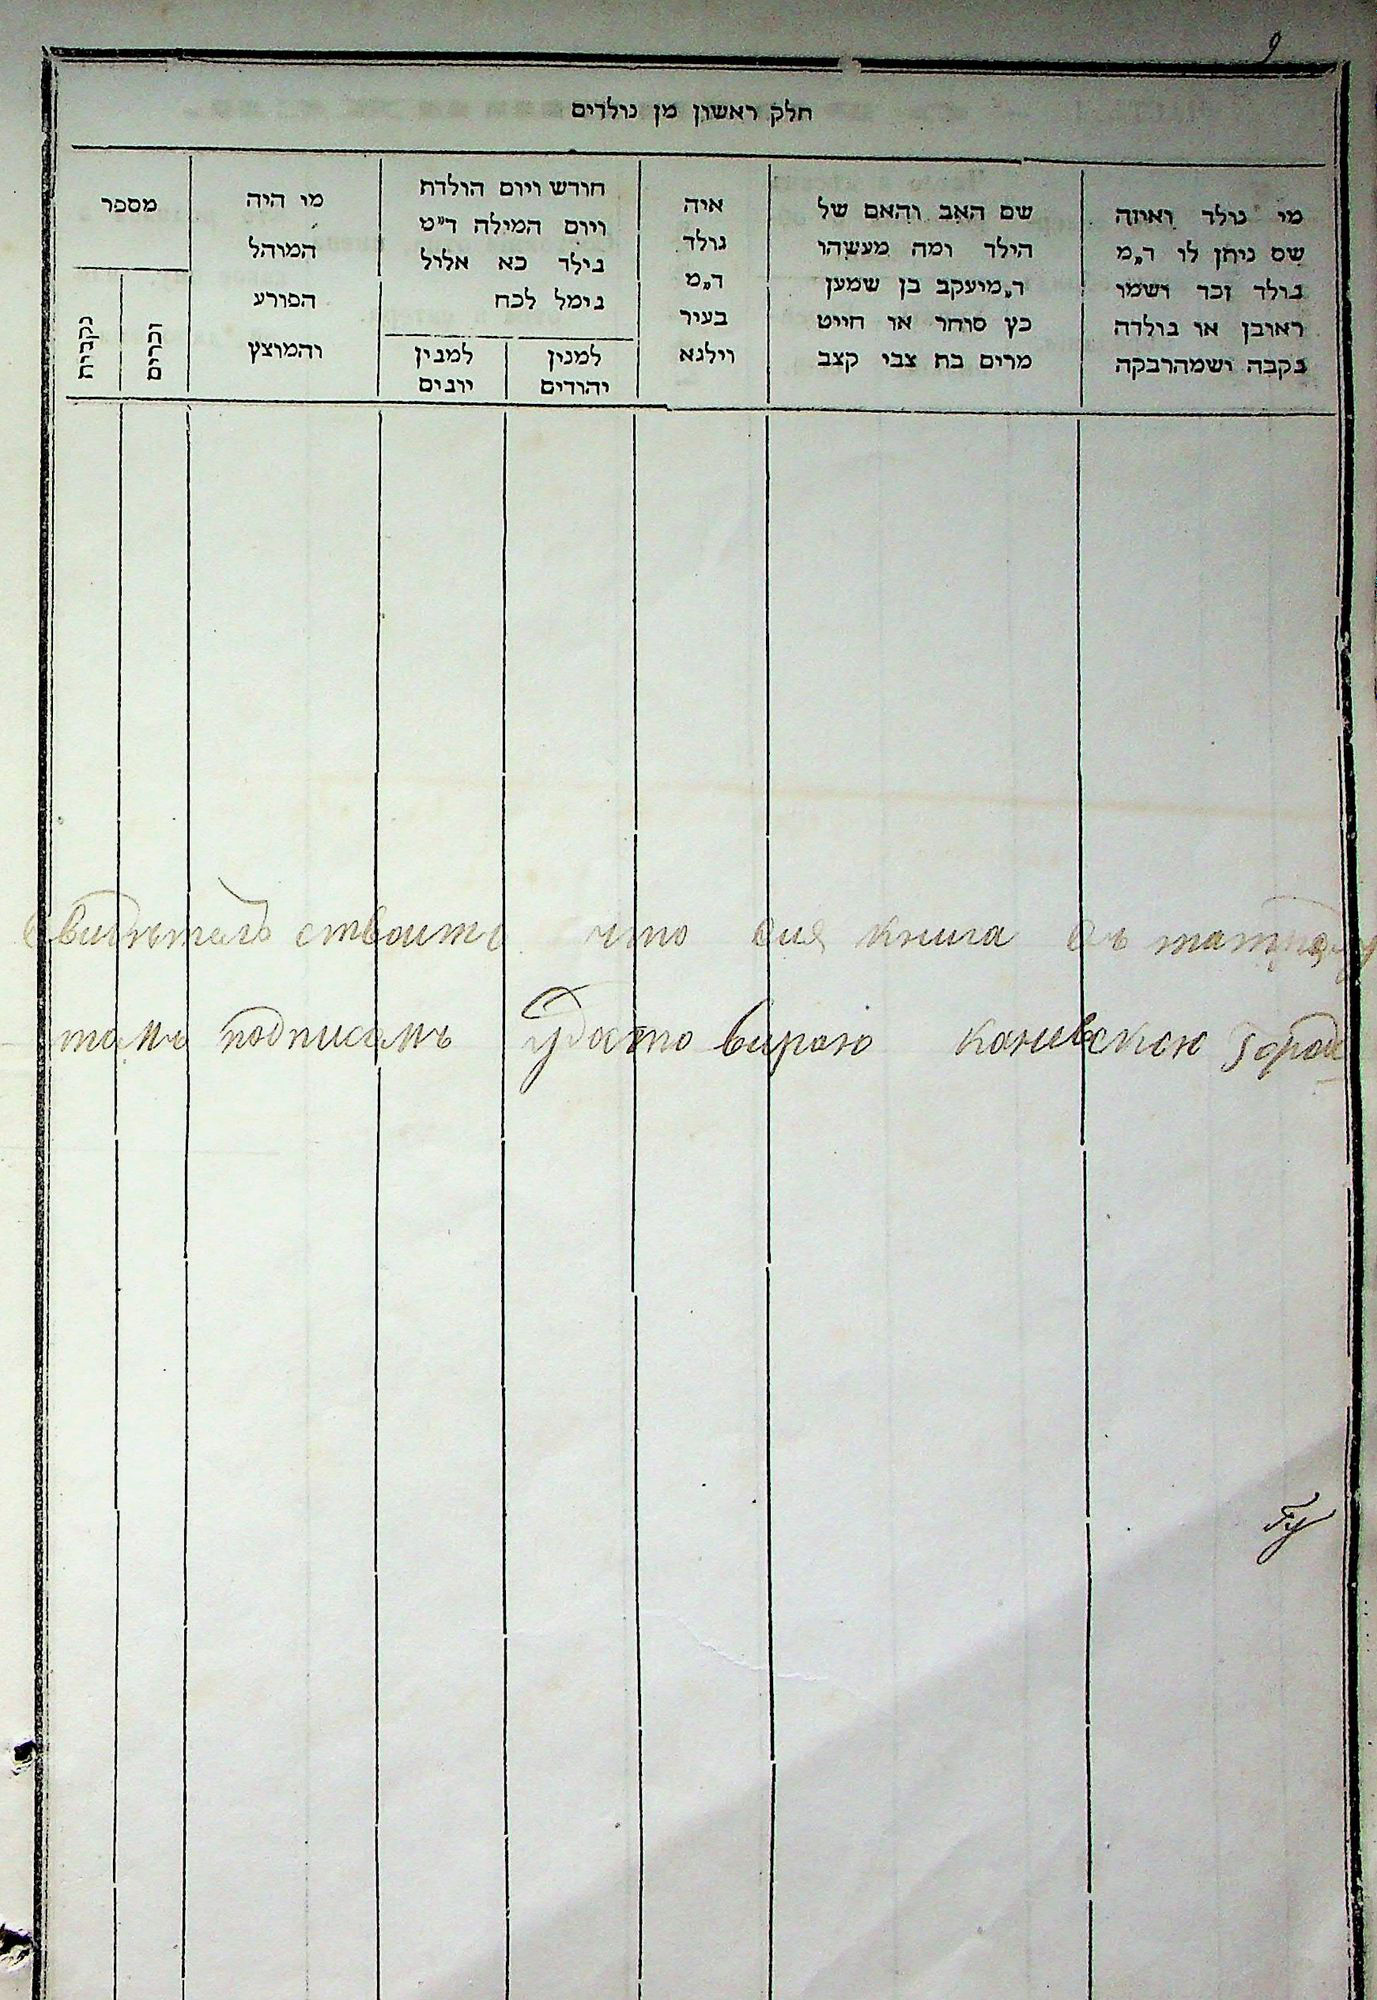 9
חלק ראשון מן נולדים
מי נולד ואיזה
שם ניתן לו ד״מ
נולד זכר ושמו
ראובן או נולדה
נקבה ושמהרבקה
שם האב והאם של
הילד ומה מעשהו
ד״מיעקב בן שמען
כץ סוחר או חייט
מרים בת צבי קצב
איה
נולד
ד״מ
בעיר
וילנא
חודש ויום הולדת
ויום המילה ד״מ
נילד כא אלול
נימל לכח
למנין
יהודים
למנין
יונים
מי היה
המוהל
הפורע
והמוצץ
מספר
זכרים
נקבות
что сия книга
подписамъ Удосто вираю каневскои Город